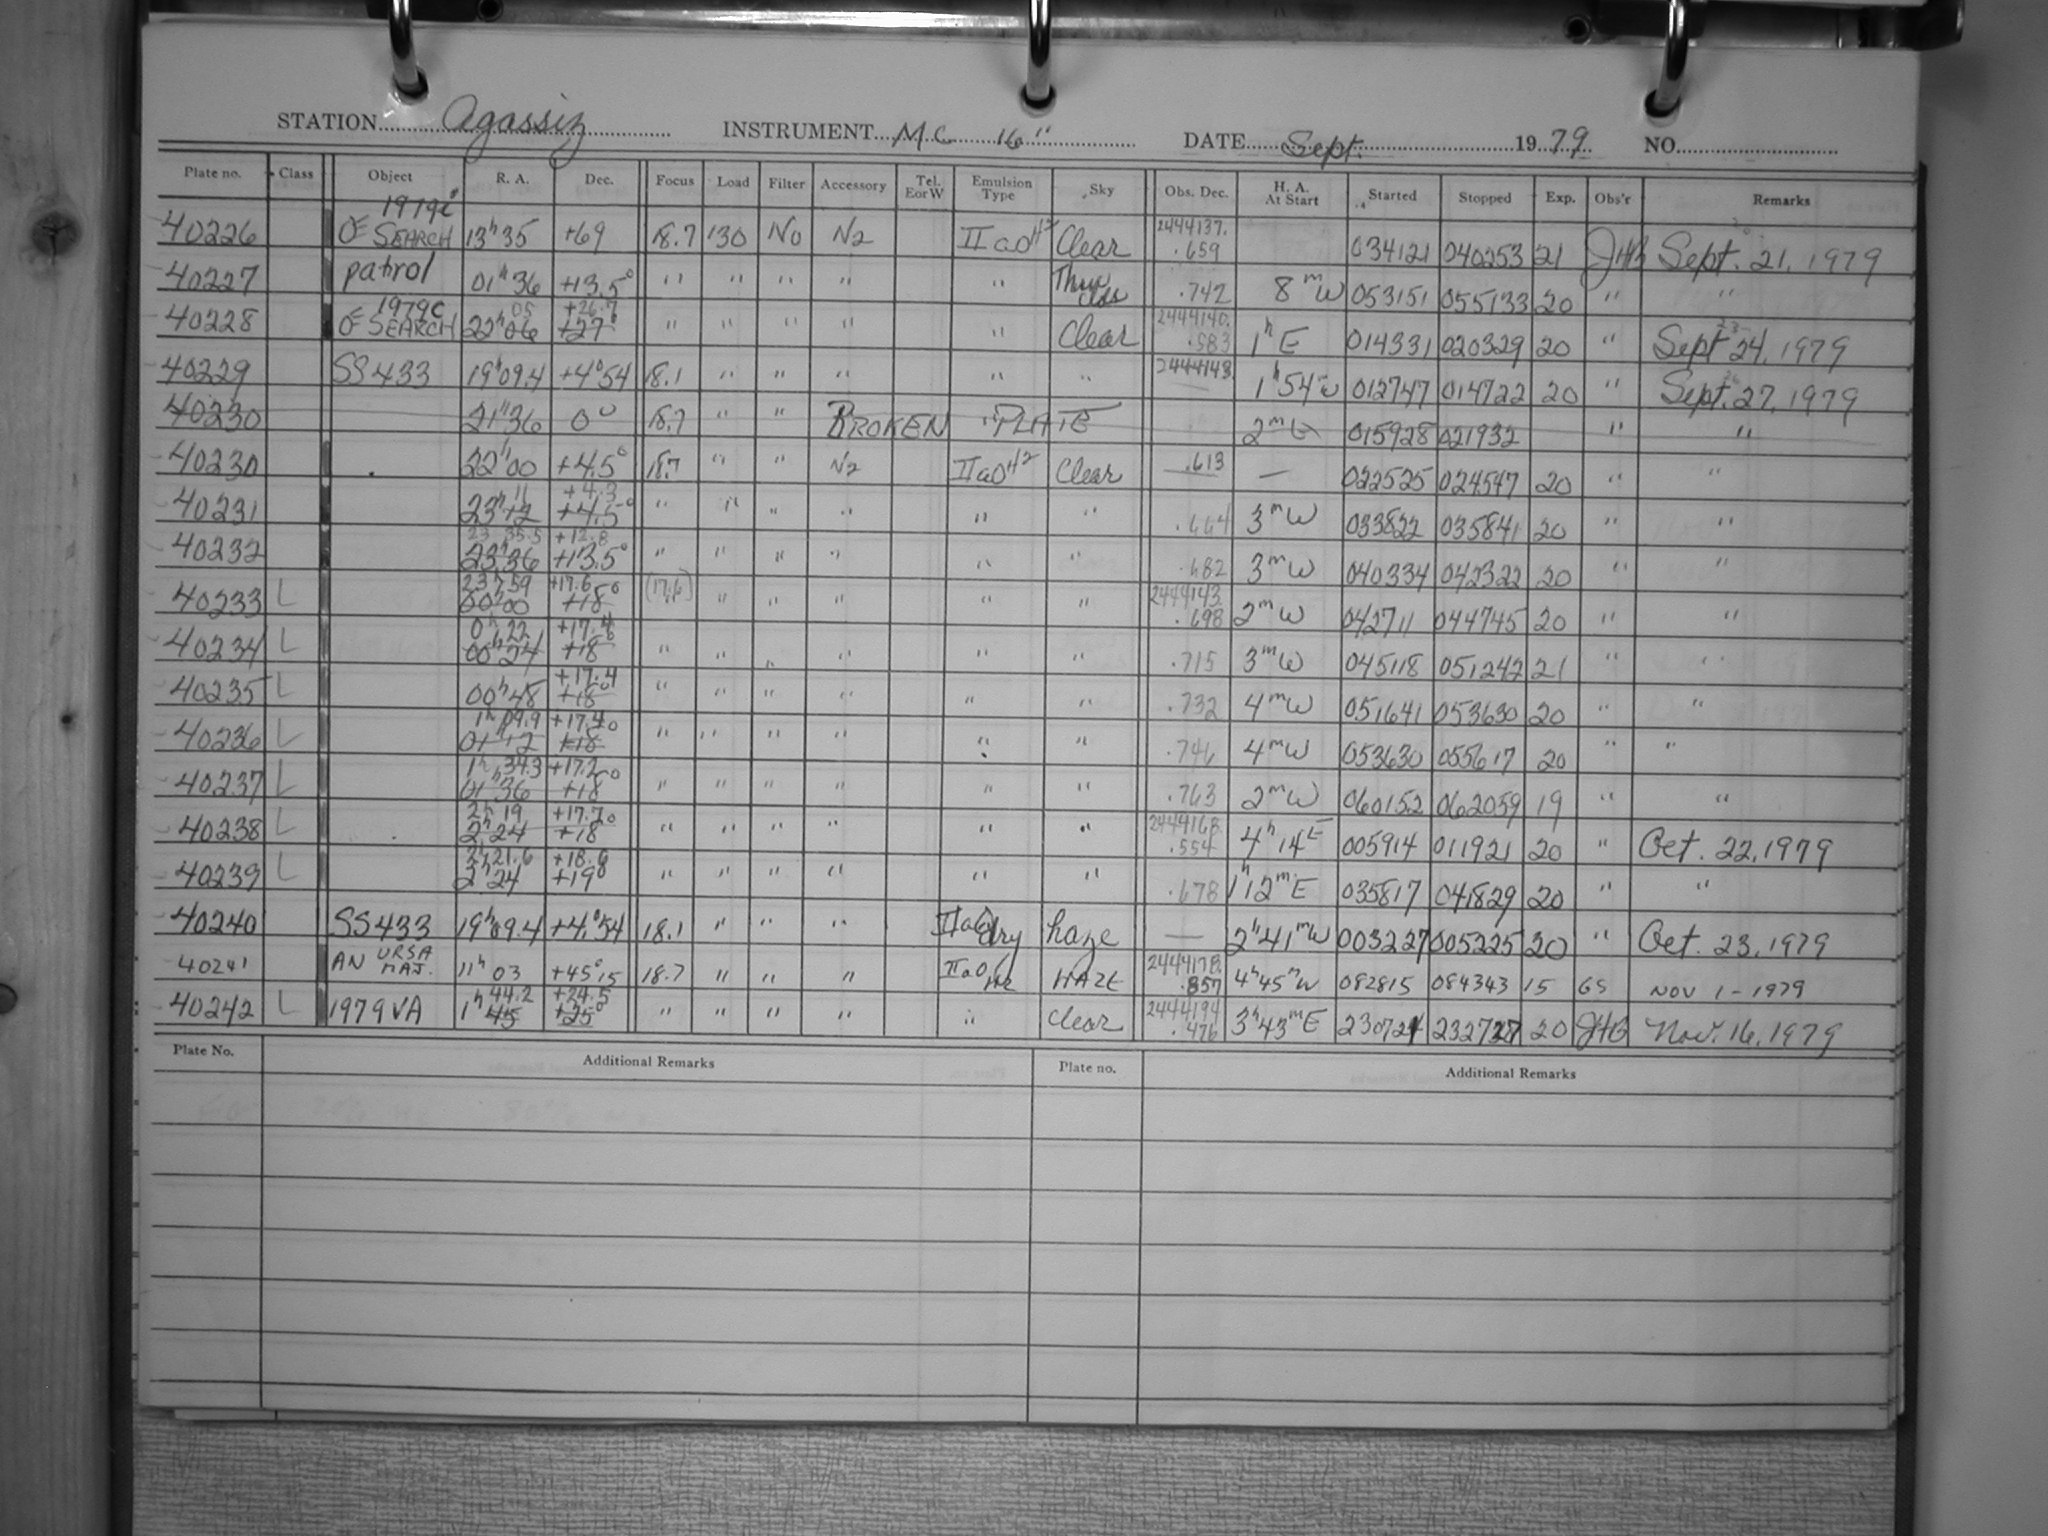 STATION Agassiz INSTRUMENT MC 16" DATE Sept. 1979 NO.
Plate no. Class Object R. A. Dec. Focus Load Filter Accessory Tel. E or W Emulsion Type Sky Obs. Dec. H. A. At Start Started Stopped Exp. Obs'r Remarks
40226 SEARCH 13h35 +69 18.7 130 No N2 IIaO H2 Clear 2444137. .659 034121 040253 21 JHB Sept. 21, 1979
40227 patrol 01h36 +13.5° " " " " " .742 8mW 053151 055133 20 " "
40228 1979c SEARCH 22h06 05 +27° +26.7 " " " " " Clear 2444140. .583 1hE 014331 020329 20 " Sept 24, 1979
40229 SS433 19h09.4 +4°54 18.1 " " " " " 2444143. 1h54mW 012747 014722 20 " Sept. 27, 1979
40230 21h36 0° 18.7 " " BROKEN " PLATE 2mE 015928 021932 " "
40230 22h00 +4.5° 18.7 " " N2 IIaO H2 Clear .613 — 022525 024547 20 " "
40231 23h12 11 +4.5° +4.3 " " " " " " .664 3mW 033822 035841 20 " "
40232 23 35.5 +12.8 23h36 +13.5° " " " " " " .682 3mW 040334 042322 20 " "
40233 L 23h59 +17.6 00h00 +18° (17.6) " " " " " 2444143. .698 2mW 042711 044745 20 " "
40234 L 0h22 +17.4 00h24 +18° " " " " " " .715 3mW 045118 051242 21 " "
40235 L 00h48 +17.4 +18° " " " " " " .732 4mW 051641 053630 20 " "
40236 L 1h09.9 +17.4 01h12 +18° " " " " " " .746 4mW 053630 055617 20 " "
40237 L 1h34.3 +17.2 01h36 +18° " " " " " " .763 2mW 060152 062059 19 " "
40238 L 2h19 +17.7 2h24 +18° " " " " " " 2444168. .554 4h14E 005914 011921 20 " Oct. 22, 1979
40239 L 2h21.6 +18.6 2h24 +19° " " " " " " .678 1h12mE 035817 041829 20 " "
40240 SS433 19h09.4 +4°54 18.1 " " " IIaO dry haze — 2h41mW 003227 005225 20 " Oct. 23, 1979
40241 AN URSA MAJ. 11h03 +45°15 18.7 " " " IIaO H2 HAZE 2444178. .857 4h45mW 082815 084343 15 GS NOV 1-1979
40242 L 1979VA 1h45 44.2 +25° +24.5 " " " " " Clear 2444194 .476 3h43mE 230724 232727 20 JHB Nov. 16, 1979
Plate No. Additional Remarks Plate no. Additional Remarks